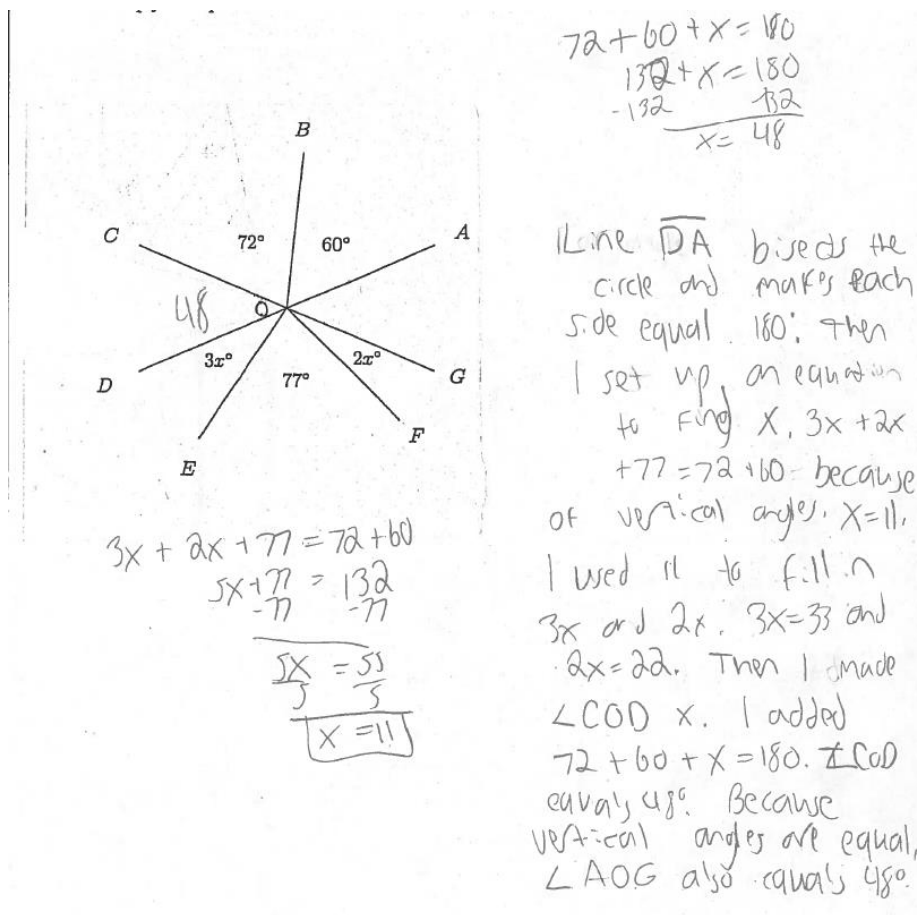 72+60+x=180
132+x=180
-132 -132
x= 48
B
C
72°
60°
A
48
O
3x°
77°
2x°
D
G
E
F
3x + 2x + 77 = 72+60
5x+77 = 132
-77 -77
5x = 55
5 5
x = 11
Line DA bisects the
circle and makes each
side equal 180°. Then
I set up an equation
to find x. 3x +2x
+77=72+60 because
of vertical angles. x=11.
I used it to fill in
3x and 2x. 3x=33 and
2x=22. Then I made
∠COD x. I added
72+60+x=180. ∠COD
equals 48°. Because
vertical angles are equal,
∠AOG also equals 48°.